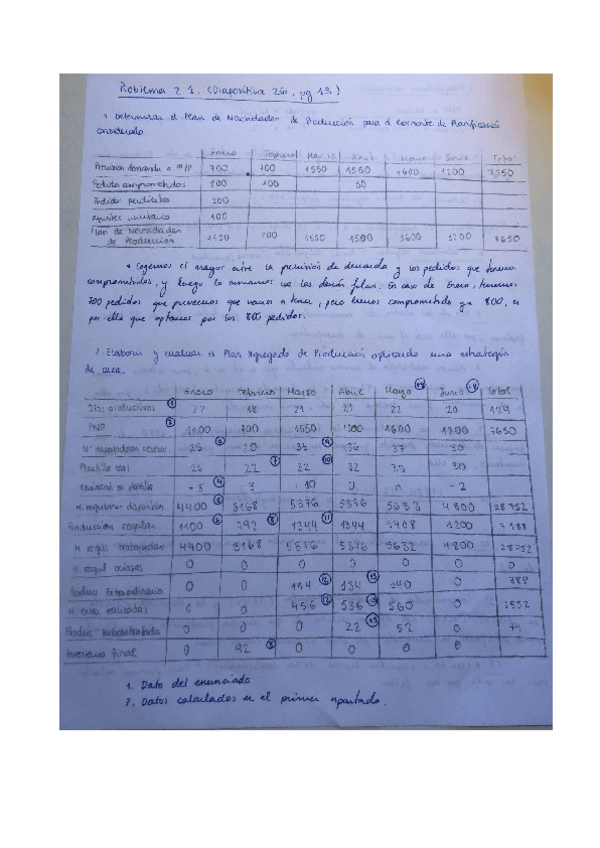 Problema 2.1. (Diapositiva 26, pg 13)
1 Determinar el Plan de Necesidades de Producción para el horizonte de Planificación
considerado
Enero Febrero Marzo Abril Mayo Junio Total
Previsión demanda a 700 700 1550 1500 1600 1200 7250
Pedidos comprometidos 800 100 50
Pedidos pendientes 200
Ajustes inventario 100
Plan de Necesidades 700 1550 1500 1600 1200 7650
de Producción
* Cogemos el mayor entre la previsión de demanda y los pedidos que tenemos
comprometidos, y luego lo sumamos con las demás filas. En caso de Enero, tenemos
700 pedidos que prevemos que vamos a tener, pero hemos comprometido ya 800, es
por ello que optamos por los 800 pedidos.
2. Elaborar y evaluar el Plan Agregado de Producción aplicando una estrategia
de caza.
Enero Febrero Marzo Abril Mayo Junio Total
Días productivos ① 22 18 21 21 22 20 124
PNP ② 700 1550 1500 1600 1200 7650
Nº trabajadores 25 20 36 37 30
Plantilla real 25 22 ⑦ 32 ⑩ 32 30
Variación en plantilla -3 ④ 10 0 0 -2
H. regulares disponibles 4400 ⑤ 3168 5376 5376 5632 4800 28752
Producción regular 1100 ⑥ 792 ⑧ 1344 ⑪ 1344 1408 1200 7188
H. regul trabajadas 4400 3168 5376 5376 5632 4800 28752
H. regul ociosas 0 0 0 0 0 0 0
Produc Extraordinario 0 0 114 ⑫ 134 ⑬ 140 0 388
H. extra realizadas 0 0 456 ⑫ 536 560 0 1552
Produc subcontratada 0 0 0 22 52 0 74
Inventario final 0 92 0 0 0 0
1. Dato del enunciado
2. Datos calculados en el primer apartado.